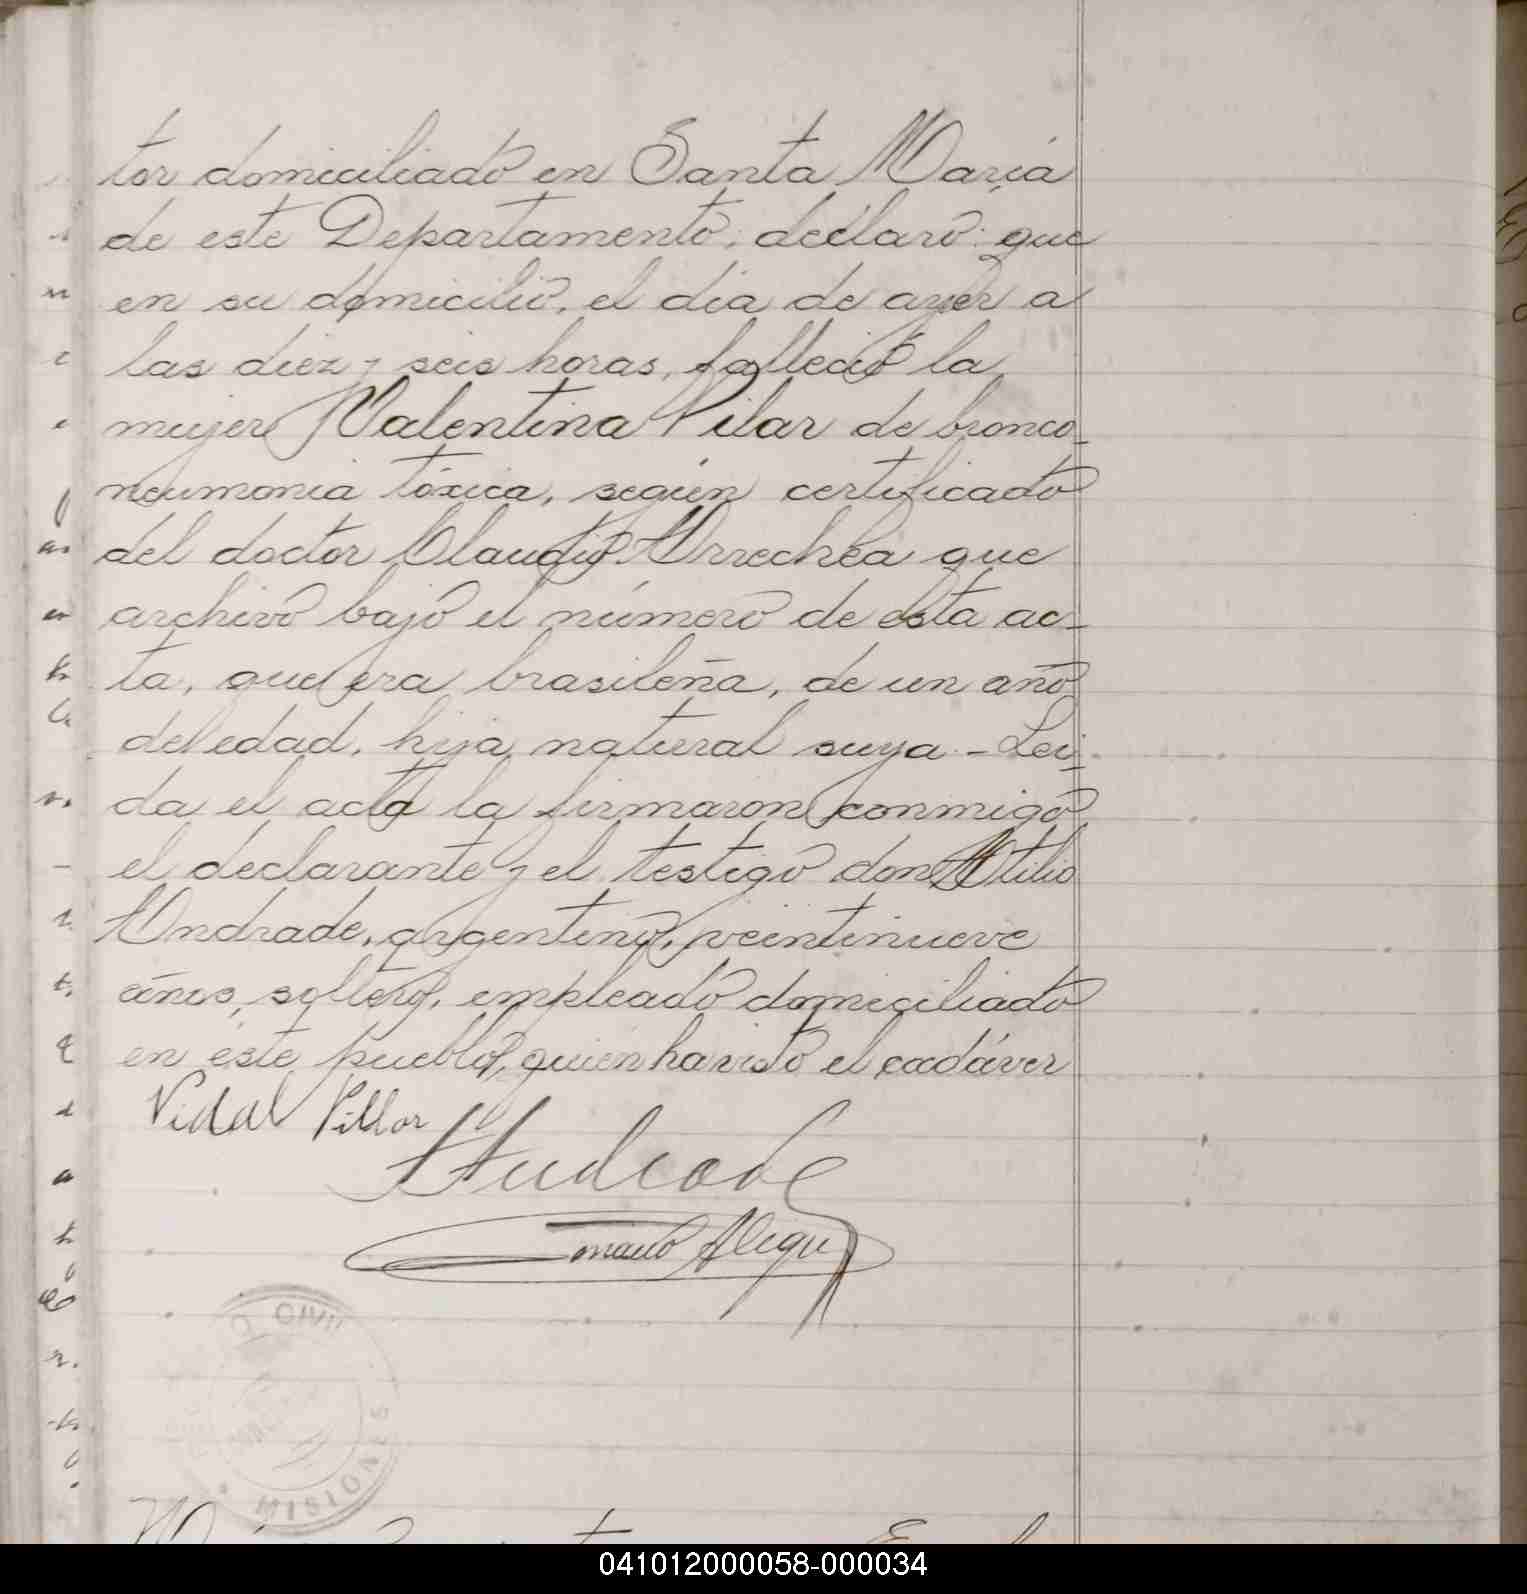 tor domiciliado en Santa María
de este Departamento, declaró: que
en su domicilio, el día de ayer a
las diez y seis horas, falleció la
mujer Valentina Pilar de bronco-
neumonia tóxica, según certificado
del doctor Claudio Arrechea que
archivo bajo el número de esta ac-
ta, que era brasileña, de un año
de edad, hija natural suya - Lei-
da el acta la firmaron conmigo
el declarante y el testigo don Atilio
Andrade, argentino, veintinueve
años, soltero, empleado domiciliado
en este pueblo, quien ha visto el cadáver
Vidal Pillar
AAndrade
Alegre
CIVIL
MISIONES
041012000058-000034